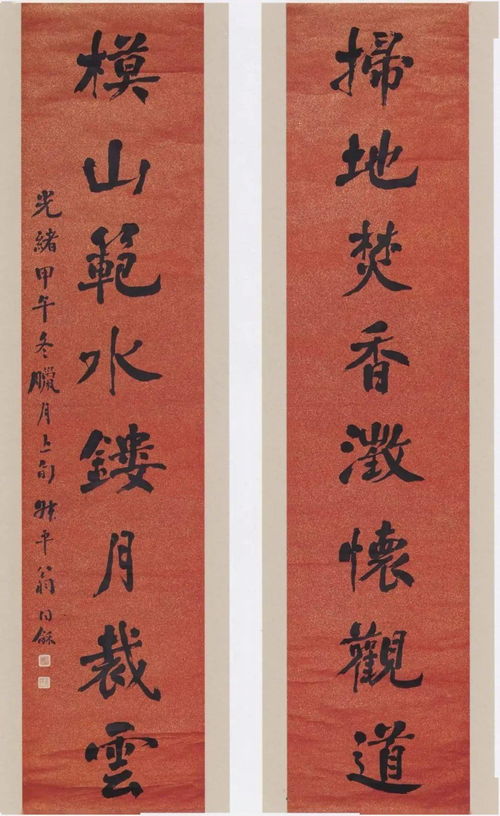 掃地焚香澂懷觀道
模山範水鏤月裁雲
光緒甲午冬臘月上旬 叔平翁同龢